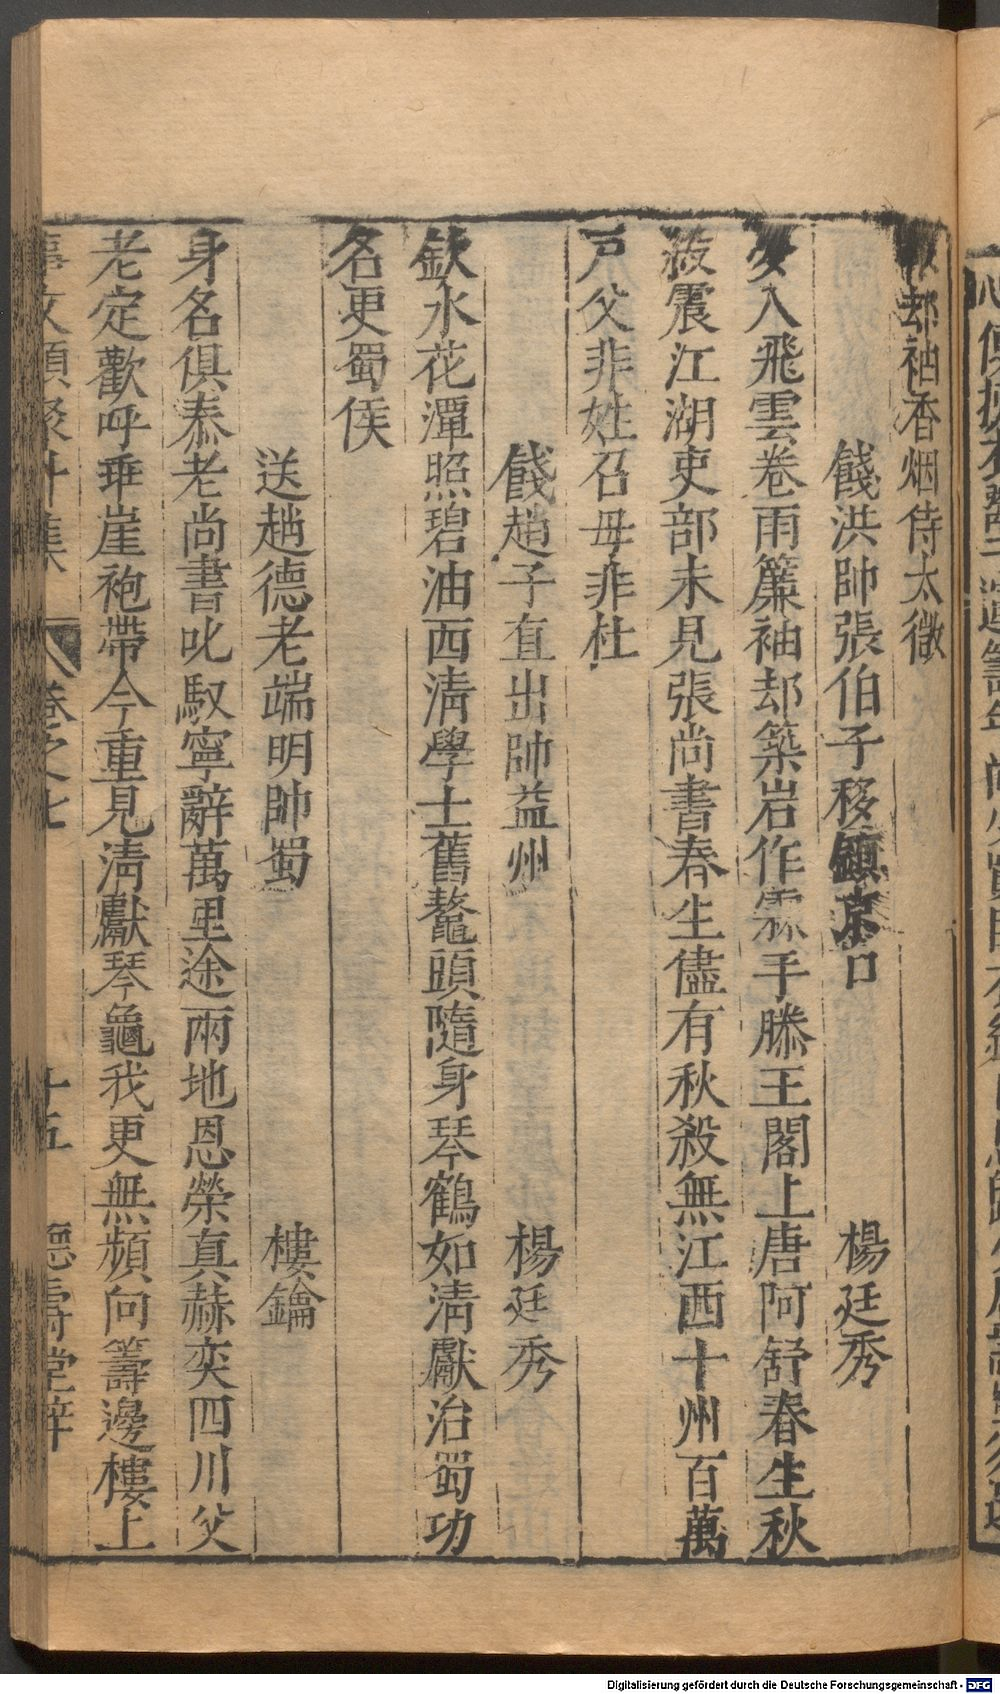 却袖香烟侍太微
餞洪帥張伯子移鎮京口　楊廷秀
入飛雲卷雨簾袖却築岩作霖手滕王閣上唐阿舒春生秋
殺震江湖吏部未見張尚書春生儘有秋殺無江西十州百萬
戶父非姓召母非杜
餞趙子直出帥益州　楊廷秀
欽水花潭照碧油西清學士舊鼇頭隨身琴鶴如清獻治蜀功
名更蜀侯
送趙德老端明帥蜀　樓鑰
身名俱泰老尚書叱馭寧辭萬里途兩地恩榮真赫奕四川父
老定歡呼乖崖袍帶今重見清獻琴龜我更無頻向籌邊樓上
卷之七　十五　德壽堂梓
Digitalisierung gefördert durch die Deutsche Forschungsgemeinschaft - DFG